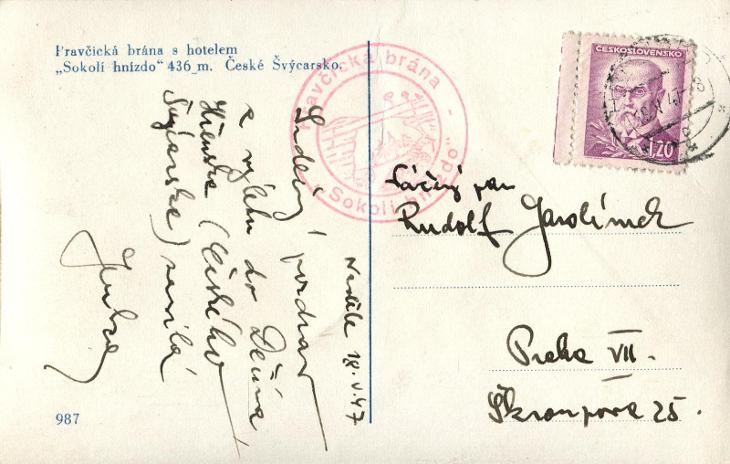 Pravčická brána s hotelem
„Sokolí hnízdo“ 436 m. České Švýcarsko.
Pravčická brána -
- „Sokolí hnízdo“
ČESKOSLOVENSKO
1,20
Neděle 18.V.47
Srdečný pozdrav
z výletu do Děčína
Hřenska (Českého
Švýcarska) zasílá
Vážený pan
Rudolf Jarolímek
Praha VII.
Škroupova 25.
987